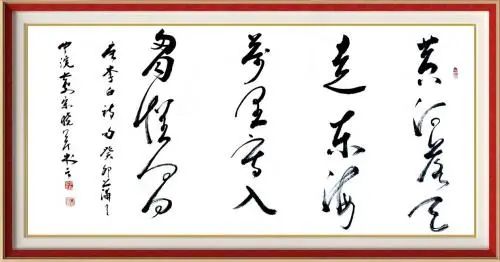 黄河落天
走东海
万里写入
胸怀间
李白诗句癸卯蒲月
中浣